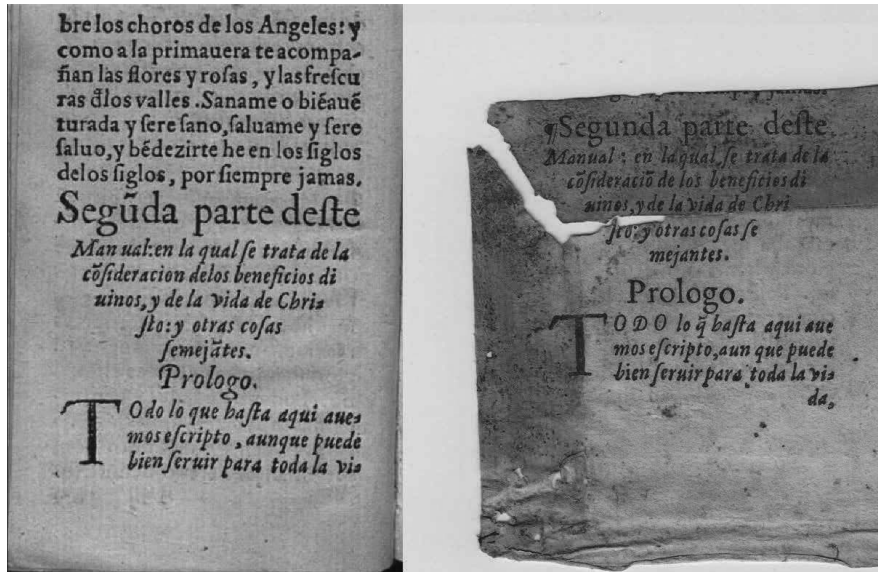 bre los choros de los Angeles: y
como a la primauera te acompa-
ñan las flores y rosas, y las frescu
ras đlos valles. Saname o biéauẽ
turada y sere sano, saluame y sere
saluo, y bédezirte he en los siglos
delos siglos, por siempre jamas.
Segũda parte deste
Manual: en la qual se trata de la
cõsideracion delos beneficios di
uinos, y de la vida de Chri-
sto: y otras cosas
semejãtes.
Prologo.
TOdo lo que hasta aqui aue-
mos escripto, aunque puede
bien seruir para toda la vi-
¶Segunda parte deste
Manual: en la qual se trata de la
cõsideraciõ de los beneficios di
uinos, y de la vida de Chri
sto: y otras cosas se
mejantes.
Prologo.
TODO lo q̃ hasta aqui aue
mos escripto, aun que puede
bien seruir para toda la vi-
da,